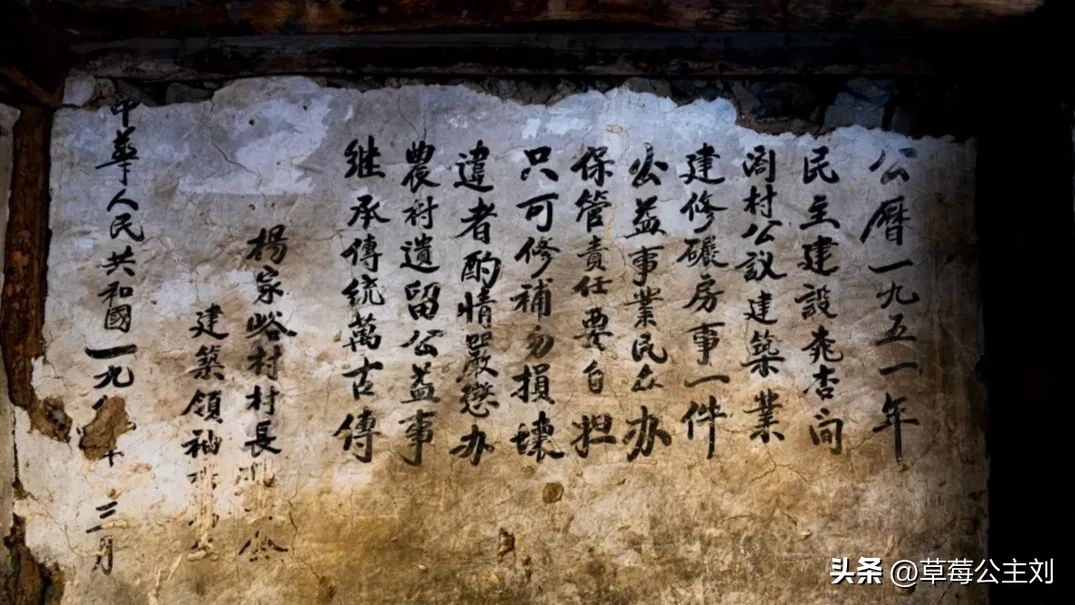 公曆一九五一年
民主建設尭杏间
阁村公议建築業
建修碾房事一件
公益事業民众办
保管責任要自担
只可修補勿損壞
違者酌情嚴懲办
農村遺留公益事
继承傳統萬古傳
楊家峪村村長
建築領袖
中華人民共和國一九 三月
头条 @草莓公主刘